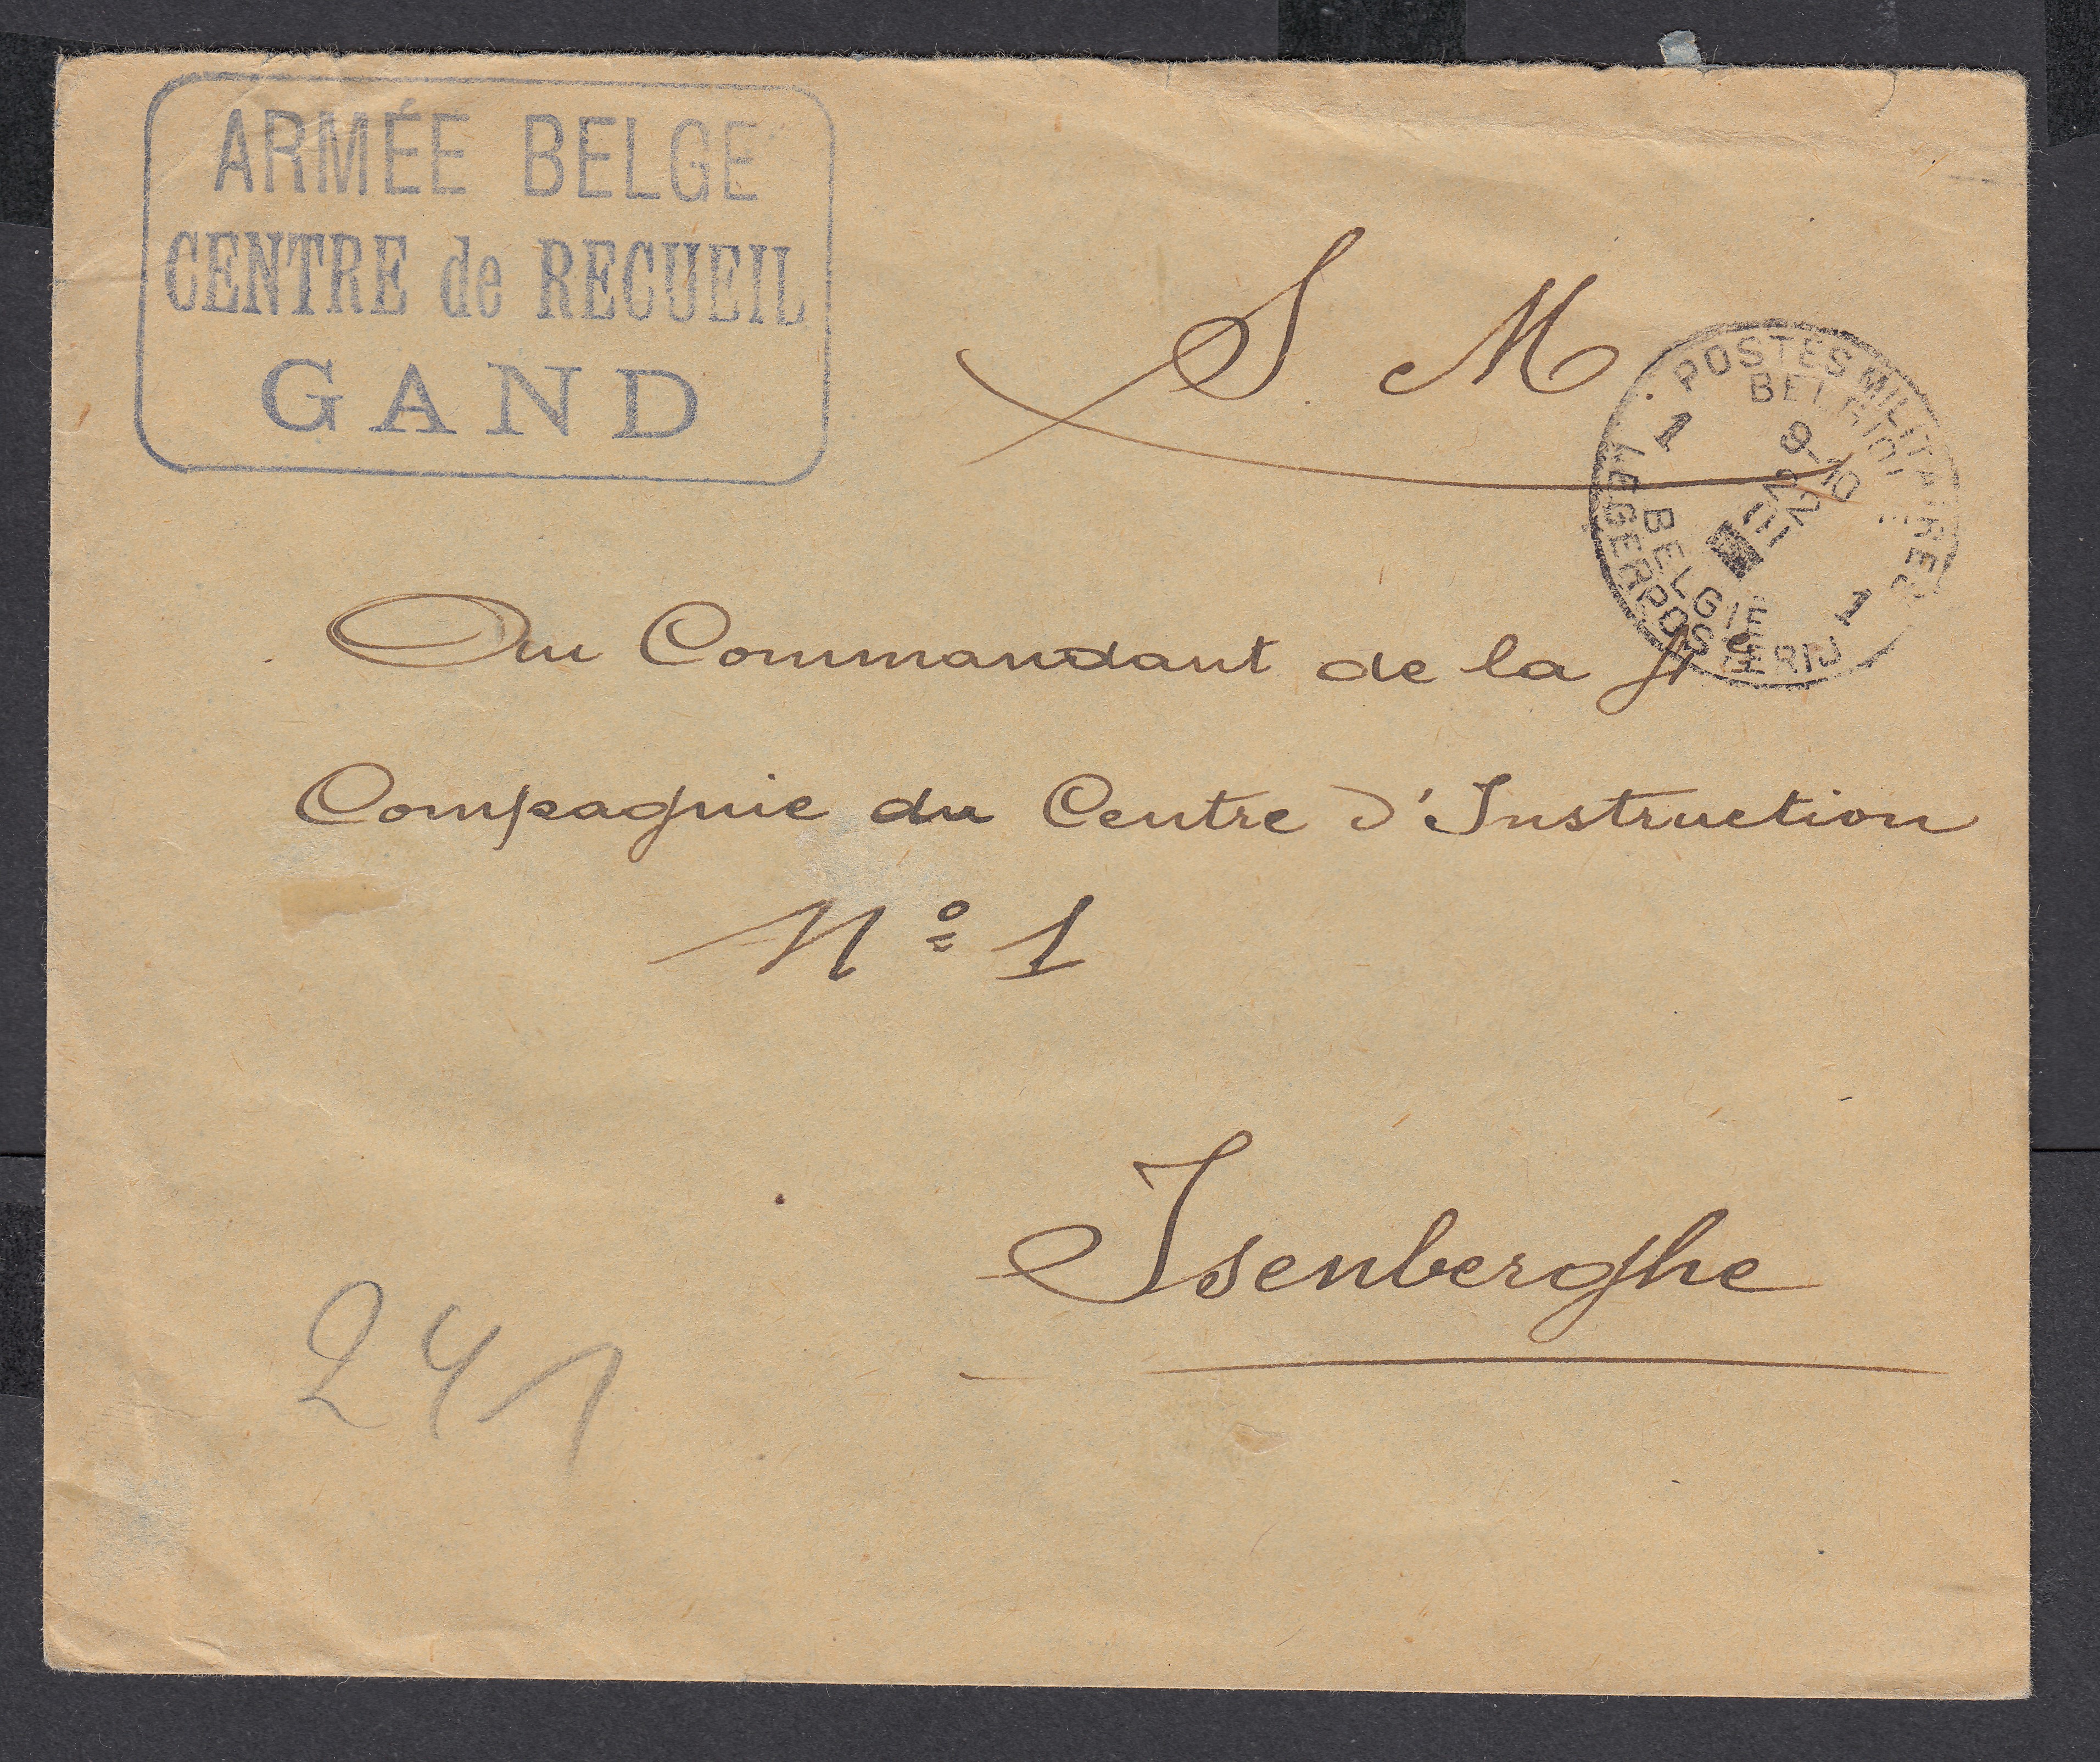 ARMÉE BELGE
CENTRE de RECUEIL
GAND
S. M.
POSTES MILITAIRES
BELGIQUE
1 9-10 1
22
III
BELGIË
LEGERPOSTERIJ
Au Commandant de la
Compagnie du Centre d'Instruction
Nº 1
Isenberghe
241